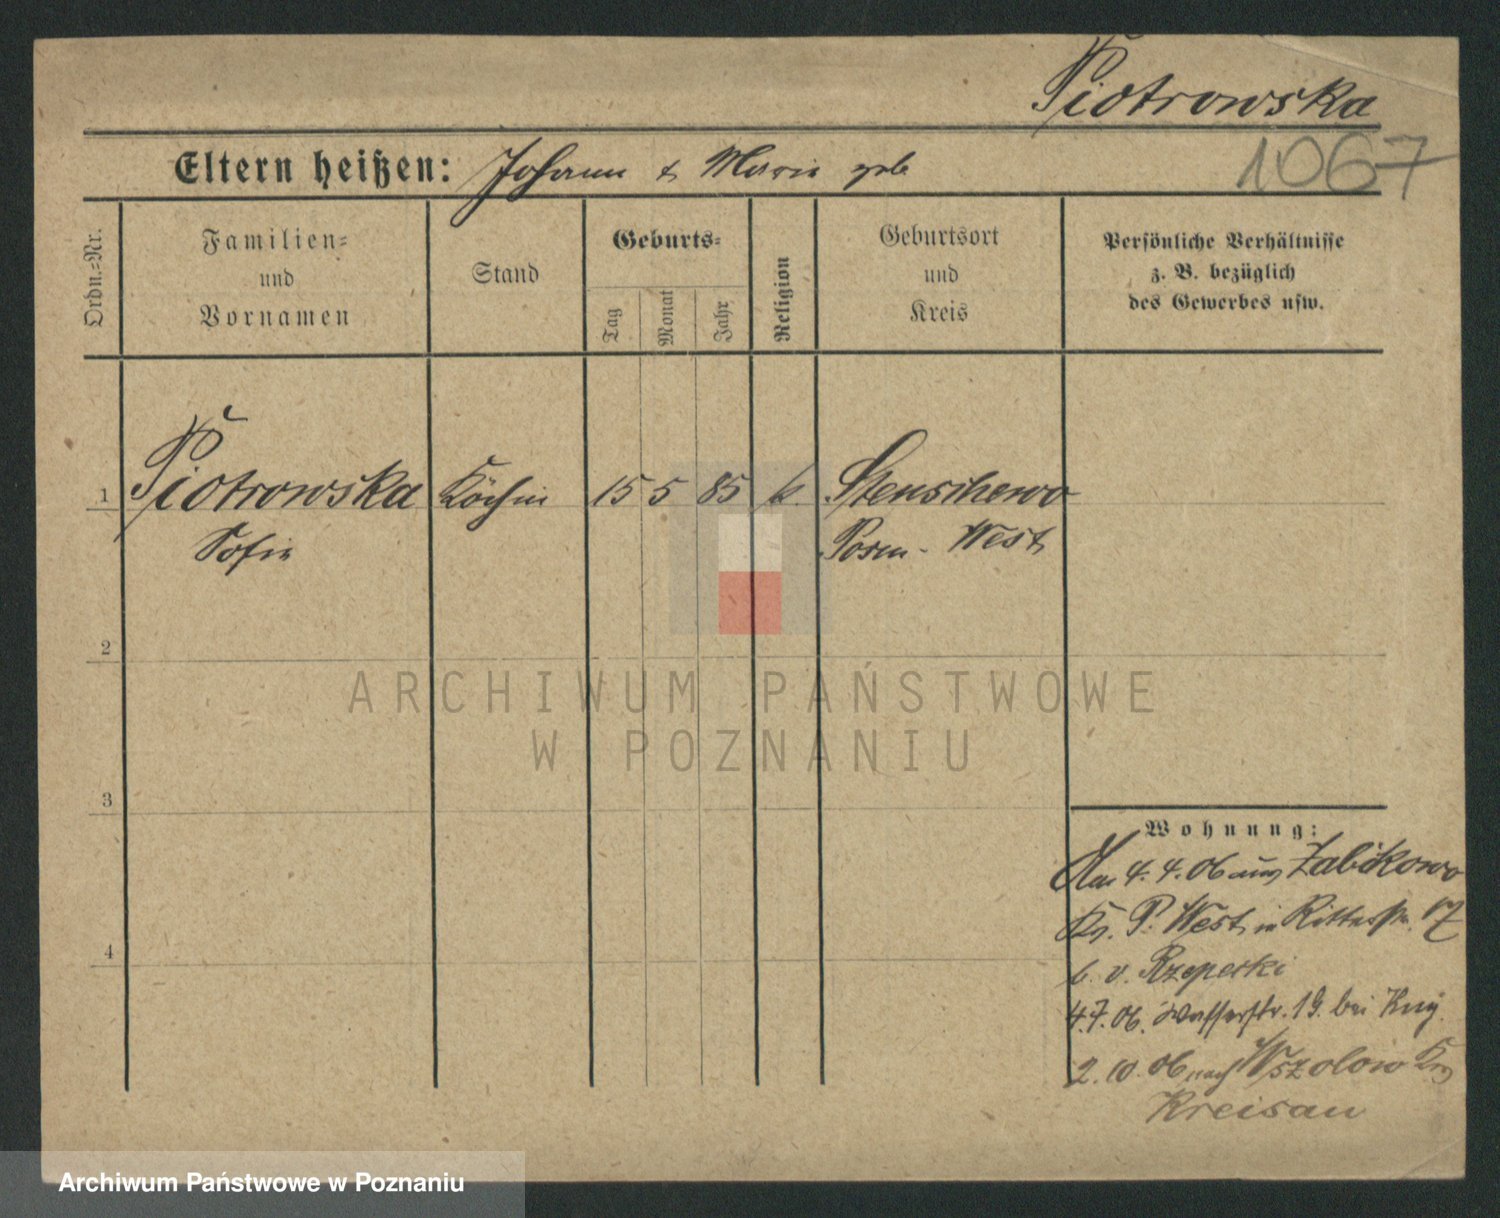 Piotrowska
1067
Eltern heißen: Johann & Marie geb
Ordn.=Nr.
Familien=
und
Vornamen
Stand
Geburts=
Tag
Monat
Jahr
Religion
Geburtsort
und
Kreis
Persönliche Verhältnisse
z. B. bezüglich
des Gewerbes usw.
1 Piotrowska Köchin 15 5 85 k. Stenschewo
Sofie Posen - West
2
3
4
Wohnung:
Am 4. 4. 06 aus Zabikowo
Kr. P. West in Ritterstr. 17
b. v. Rzepecki
4.7.06. Wasserstr. 19. bei
2. 10. 06 nach
ARCHIWUM PAŃSTWOWE
W POZNANIU
Archiwum Państwowe w Poznaniu